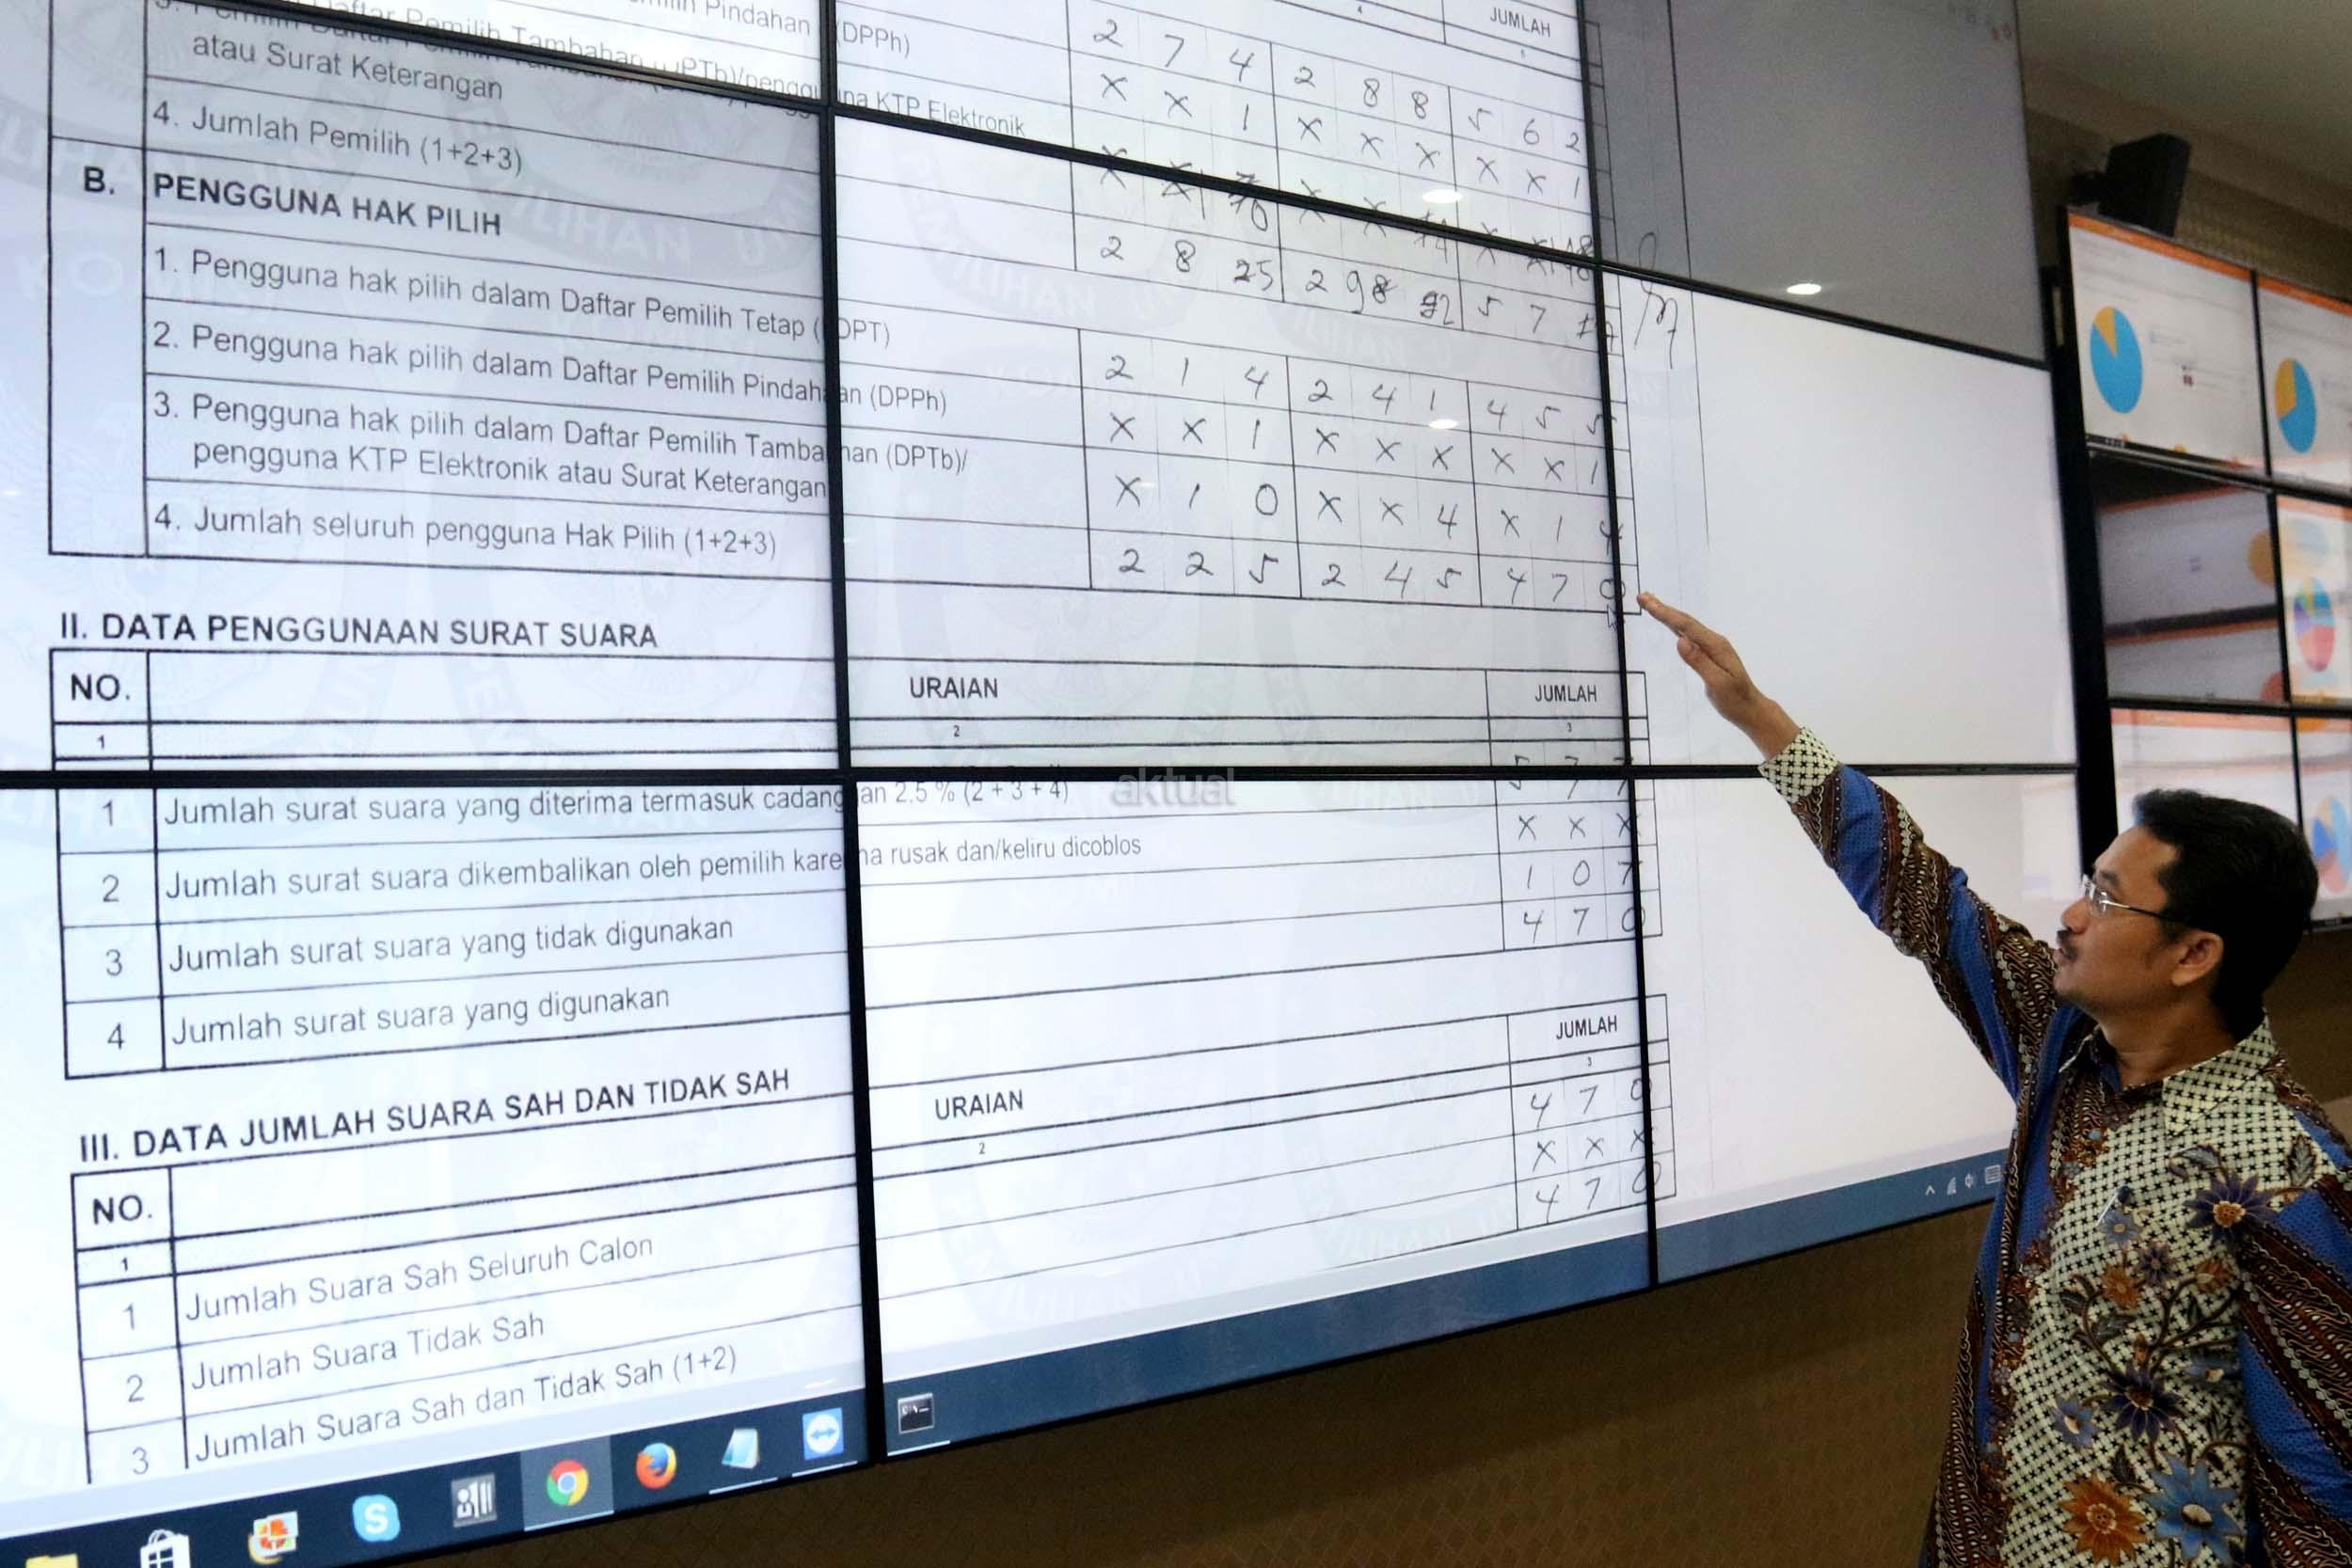 JUMLAH
Pindahan (DPPh)
2 7 4 2 8 8 5 6 2
atau Surat Keterangan
KTP Elektronik
X X 1 X X X X X 1
4. Jumlah Pemilih (1+2+3)
B. PENGGUNA HAK PILIH
1. Pengguna hak pilih dalam Daftar Pemilih Tetap (DPT)
2 1 4 2 4 1 4 5 5
2. Pengguna hak pilih dalam Daftar Pemilih Pindahan (DPPh)
X X 1 X X X X X 1
3. Pengguna hak pilih dalam Daftar Pemilih Tambahan (DPTb)/
pengguna KTP Elektronik atau Surat Keterangan
X 1 0 X X 4 X 1 4
4. Jumlah seluruh pengguna Hak Pilih (1+2+3)
2 2 5 2 4 5 4 7 0
II. DATA PENGGUNAAN SURAT SUARA
NO. URAIAN JUMLAH
1 2 3
1 Jumlah surat suara yang diterima termasuk cadangan 2,5 % (2 + 3 + 4) 5 7 7
2 Jumlah surat suara dikembalikan oleh pemilih karena rusak dan/keliru dicoblos X X X
3 Jumlah surat suara yang tidak digunakan 1 0 7
4 Jumlah surat suara yang digunakan 4 7 0
III. DATA JUMLAH SUARA SAH DAN TIDAK SAH
NO. URAIAN JUMLAH
1 2 3
1 Jumlah Suara Sah Seluruh Calon 4 7 0
2 Jumlah Suara Tidak Sah X X X
3 Jumlah Suara Sah dan Tidak Sah (1+2) 4 7 0
aktual